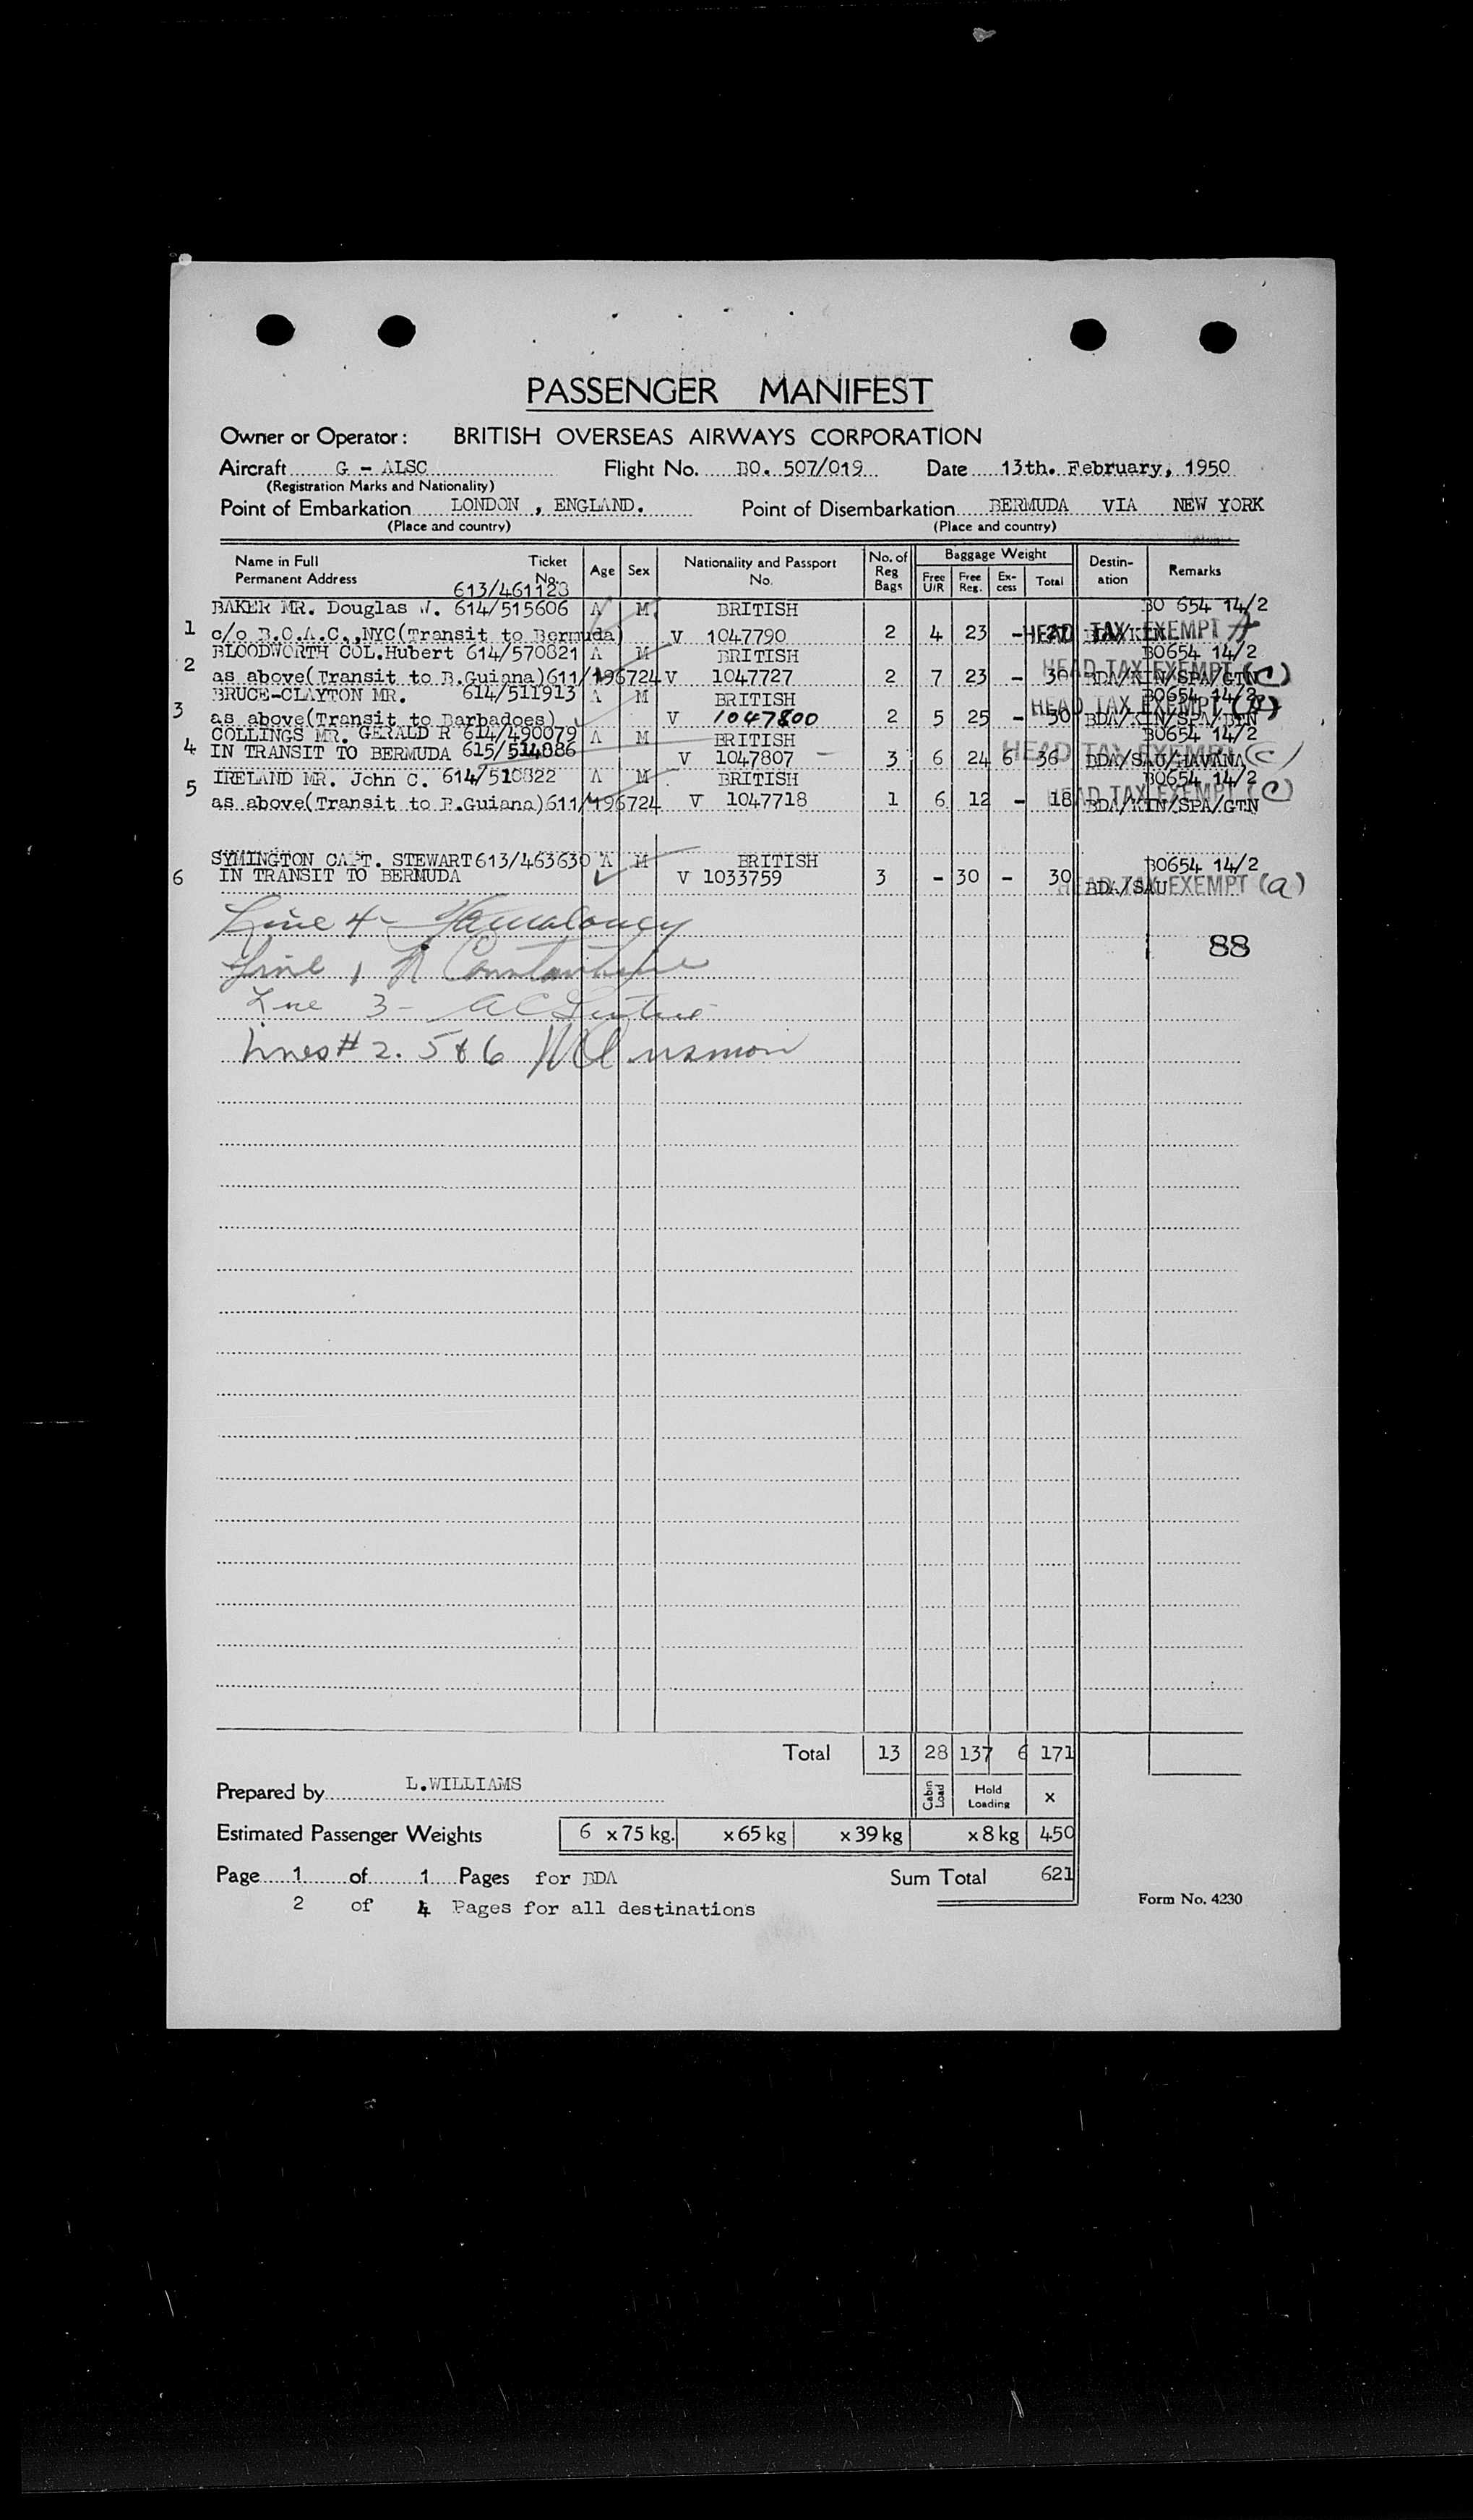 PASSENGER MANIFEST
Owner or Operator: BRITISH OVERSEAS AIRWAYS CORPORATION
Aircraft G - ALSC Flight No. BO. 507/019 Date 13th. February, 1950
(Registration Marks and Nationality)
Point of Embarkation LONDON , ENGLAND. Point of Disembarkation BERMUDA VIA NEW YORK
(Place and country) (Place and country)
Name in Full Ticket Age Sex Nationality and Passport No. of Baggage Weight Destin- Remarks
Permanent Address No. No. Reg Bags Free U/R Free Reg. Ex-cess Total ation
613/461123
BAKER MR. Douglas W. 614/515606 A M BRITISH BO 654 14/2
1 c/o B.O.A.C.,NYC(Transit to Bermuda) V 1047790 2 4 23 - 27 BDA/KIN HEAD TAX EXEMPT A
BLOODWORTH COL.Hubert 614/570821 A M BRITISH BO654 14/2
2 as above(Transit to B.Guiana)611/196724 V 1047727 2 7 23 - 30 BDA/KIN/SPA/GTN HEAD TAX EXEMPT (C)
BRUCE-CLAYTON MR. 614/511913 A M BRITISH BO654 14/2
3 as above(Transit to Barbadoes) V 1047800 2 5 25 - 30 BDA/KIN/SPA/ HEAD TAX EXEMPT (A)
COLLINGS MR. GERALD R 614/490079 A M BRITISH BO654 14/2
4 IN TRANSIT TO BERMUDA 615/514886 V 1047807 3 6 24 6 36 BDA/SAU/HAVANA HEAD TAX EXEMPT (C)
IRELAND MR. John C. 614/510822 A M BRITISH BO654 14/2
5 as above(Transit to B.Guiana)611/196724 V 1047718 1 6 12 - 18 BDA/KIN/SPA/GTN HEAD TAX EXEMPT (C)
SYMINGTON CAPT. STEWART 613/463630 A M BRITISH BO654 14/2
6 IN TRANSIT TO BERMUDA V 1033759 3 - 30 - 30 BDA/SAU HEAD TAX EXEMPT (a)
Line 4 -
88
Line 1 Constantine
Line 3 -
Lines # 2. 5 & 6
Total 13 28 137 6 171
Prepared by L.WILLIAMS Cabin Load Hold Loading x
Estimated Passenger Weights 6 x 75 kg. x 65 kg x 39 kg x 8 kg 450
Page 1 of 1 Pages for BDA Sum Total 621
2 of 4 Pages for all destinations Form No. 4230